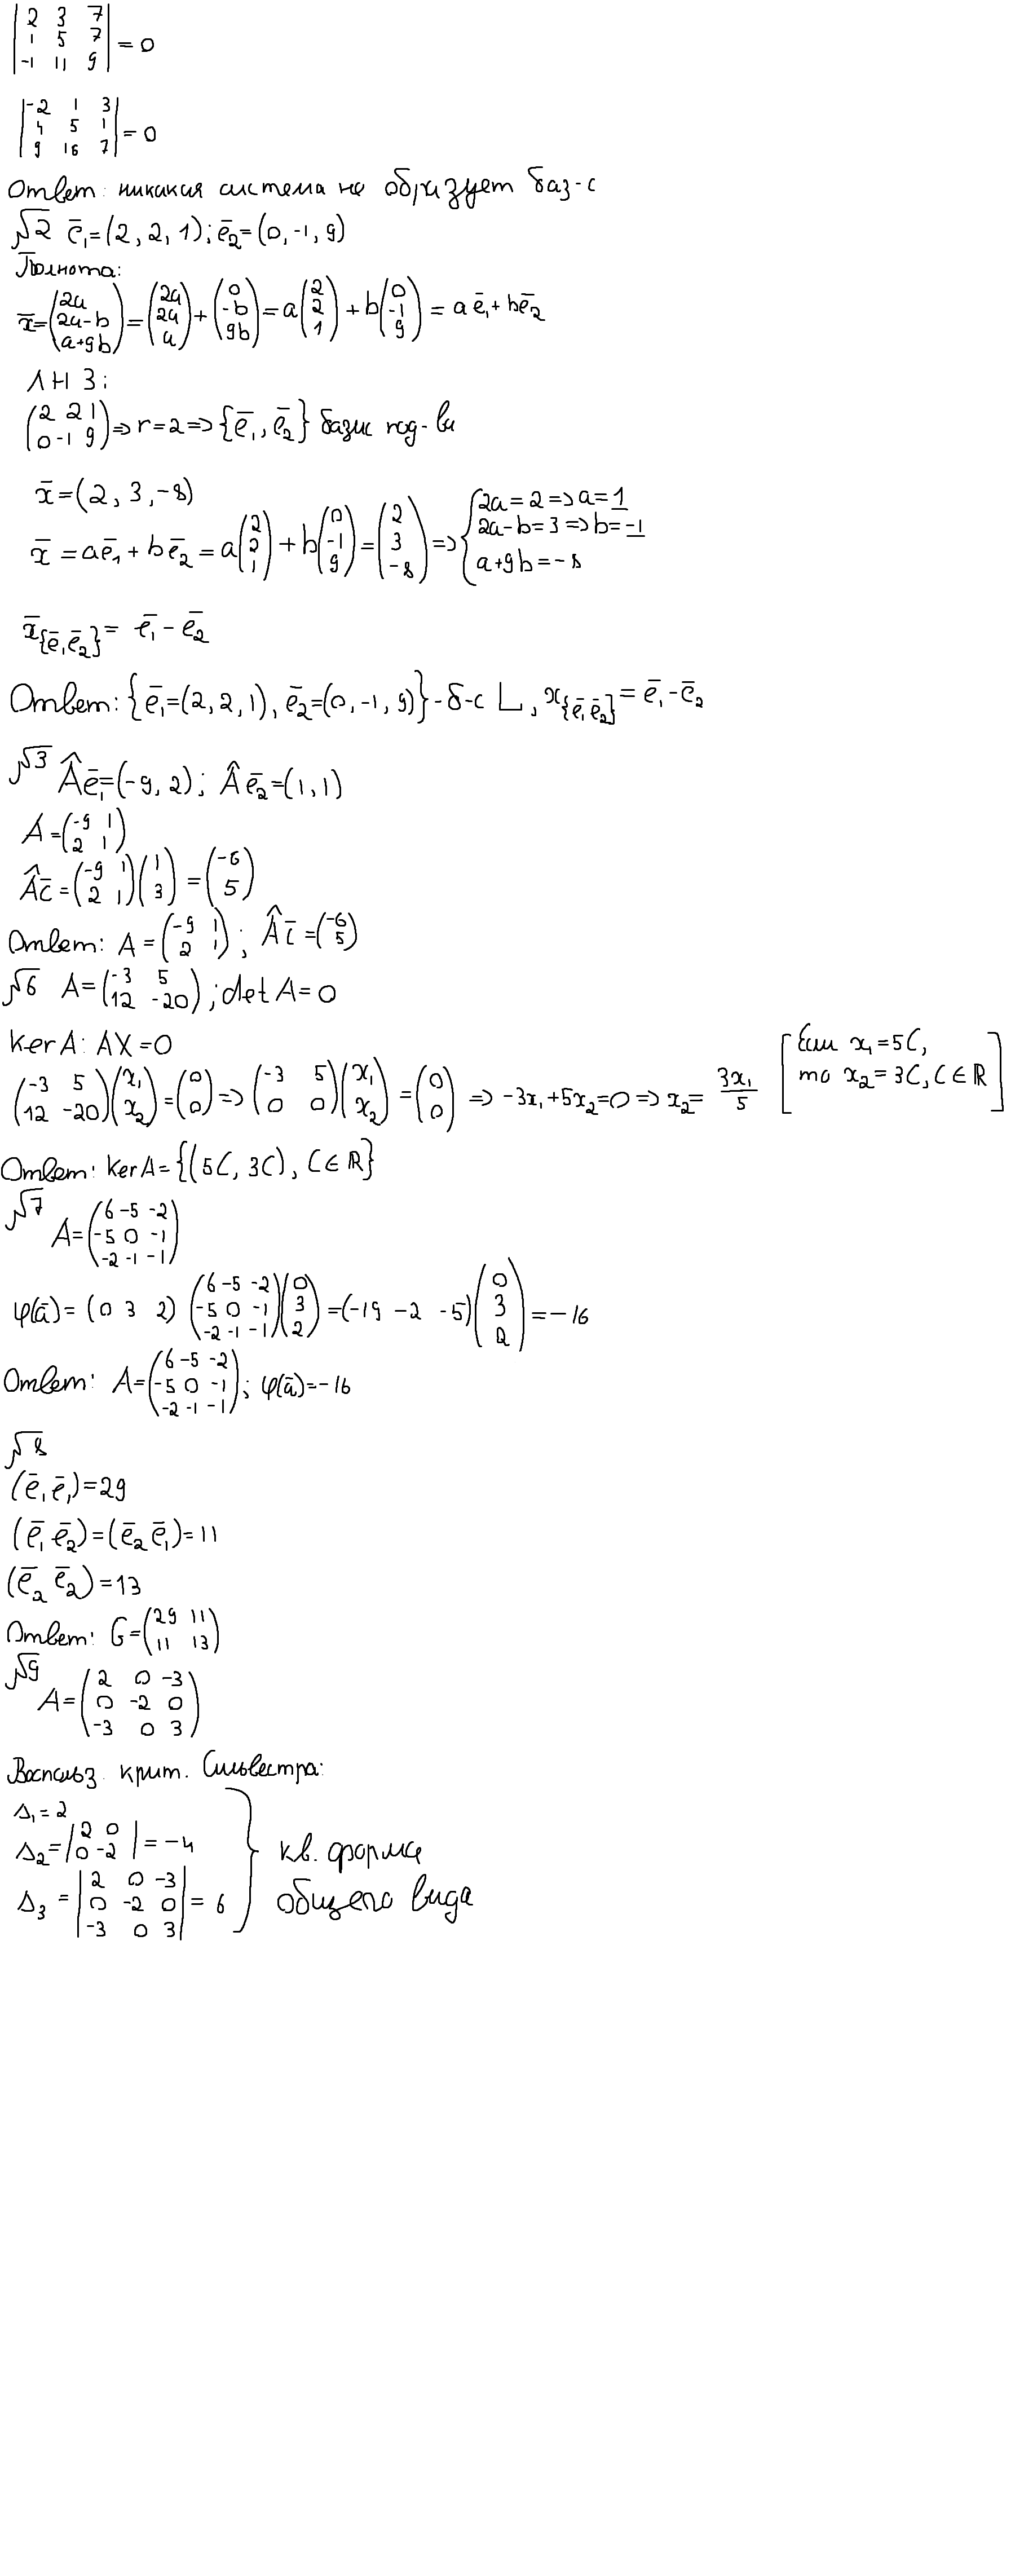 |2 3 7|
|1 5 7| = 0
|-1 11 9|
|-2 1 3|
|4 5 1| = 0
|9 16 7|
Ответ: никакая система не образует баз-с
√2 ē₁=(2, 2, 1); ē₂=(0, -1, 9)
Полнота:
x̄=(2a; 2a-b; a+9b)=(2a; 2a; a)+(0; -b; 9b)=a(2; 2; 1)+b(0; -1; 9)=a ē₁+bē₂
ЛНЗ:
(2 2 1; 0 -1 9)⇒r=2⇒{ē₁, ē₂} базис под-ва
x̄=(2, 3, -8)
x̄=aē₁+bē₂=a(2; 2; 1)+b(0; -1; 9)=(2; 3; -8)⇒{2a=2⇒a=1; 2a-b=3⇒b=-1; a+9b=-8
x̄{ē₁ē₂}= ē₁-ē₂
Ответ: {ē₁=(2, 2, 1), ē₂=(0, -1, 9)}-б-с L, x{ē₁ē₂}=ē₁-ē₂
√3 Âē₁=(-9, 2); Âē₂=(1, 1)
A=(-9 1; 2 1)
Âc̄=(-9 1; 2 1)(1; 3)=(-6; 5)
Ответ: A=(-9 1; 2 1); Âc̄=(-6; 5)
√6 A=(-3 5; 12 -20); det A=0
kerA: AX=0
(-3 5; 12 -20)(x₁; x₂)=(0; 0)⇒(-3 5; 0 0)(x₁; x₂)=(0; 0)⇒-3x₁+5x₂=0⇒x₂=3x₁/5 [Если x₁=5C, то x₂=3C, C∈ℝ]
Ответ: kerA={(5C, 3C), C∈ℝ}
√7
A=(6 -5 -2; -5 0 -1; -2 -1 -1)
φ(ā)=(0 3 2)(6 -5 -2; -5 0 -1; -2 -1 -1)(0; 3; 2)=(-19 -2 -5)(0; 3; 2)=-16
Ответ: A=(6 -5 -2; -5 0 -1; -2 -1 -1); φ(ā)=-16
√8
(ē₁ē₁)=29
(ē₁ē₂)=(ē₂ē₁)=11
(ē₂ē₂)=13
Ответ: G=(29 11; 11 13)
√9
A=(2 0 -3; 0 -2 0; -3 0 3)
Воспольз. крит. Сильвестра:
Δ₁=2
Δ₂=|2 0; 0 -2|=-4
Δ₃=|2 0 -3; 0 -2 0; -3 0 3|=6
} кв. форма
общего вида